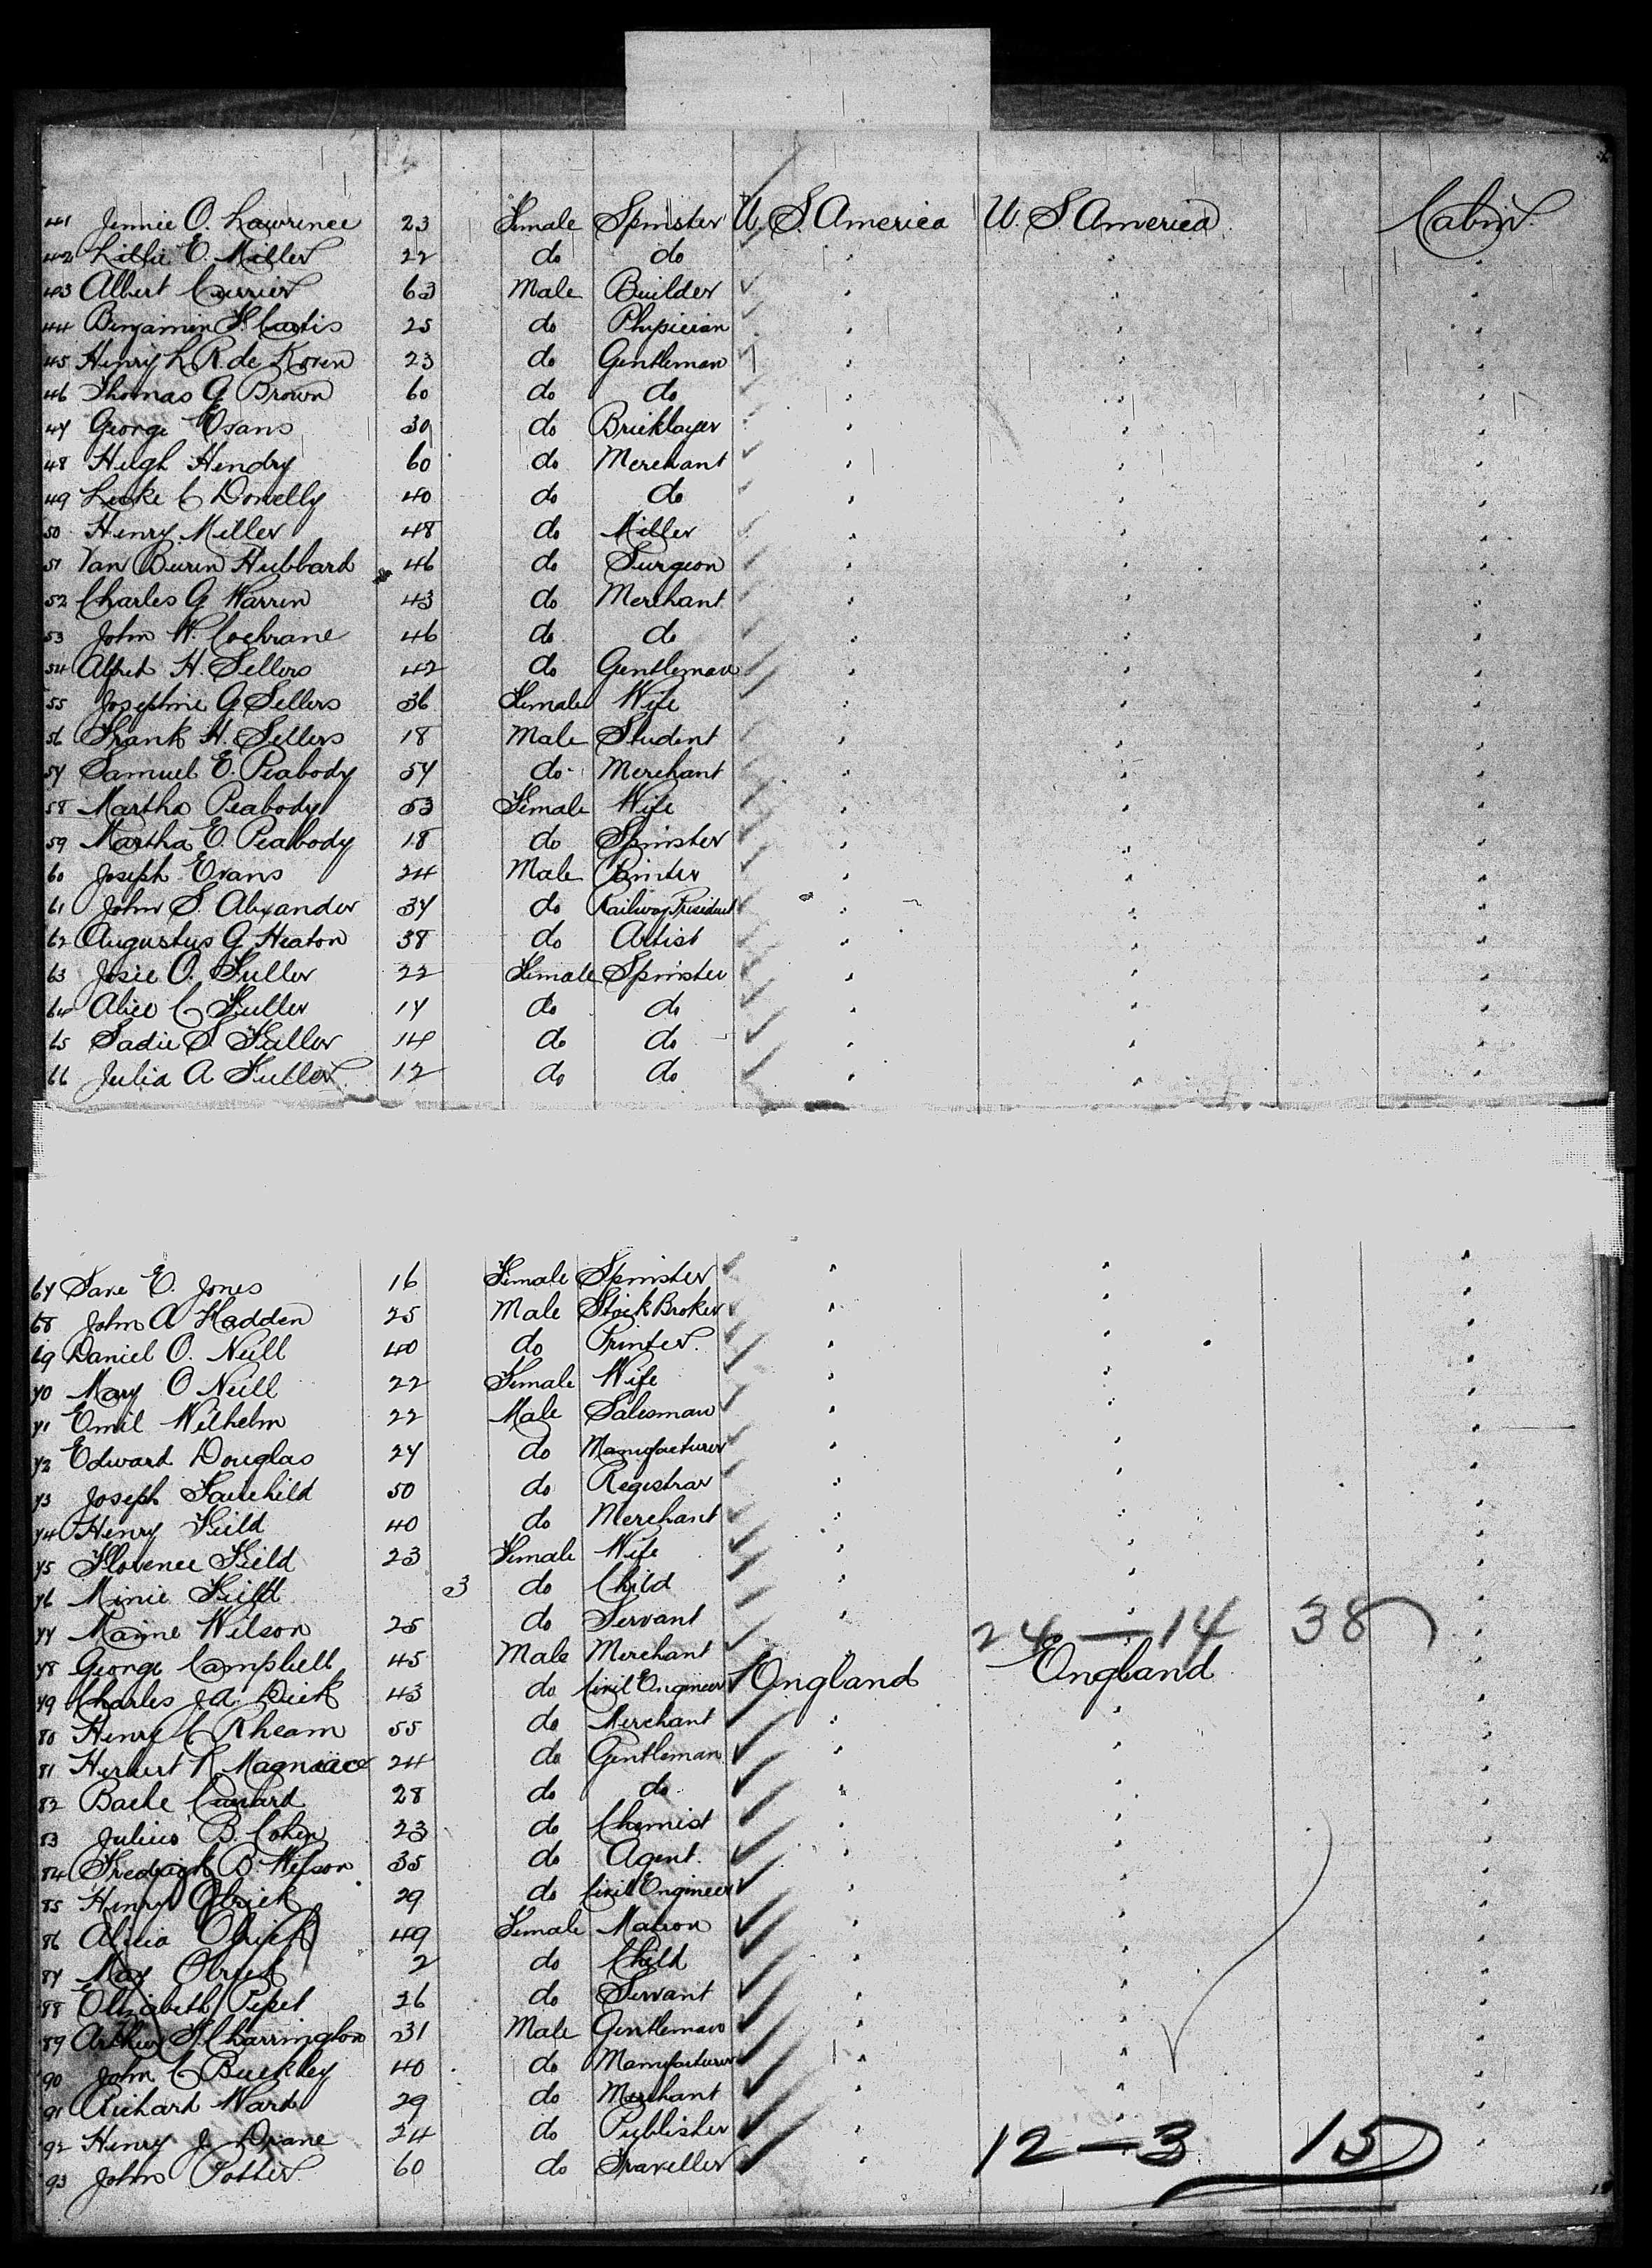 41 Jennie O. Lawrence 23 Female Spinster U. S. America U. S. America Cabin
42 Lillie E. Miller 22 do do " " "
43 Albert Currier 63 Male Builder " " "
44 Benjamin F. Curtis 25 do Physician " " "
45 Henry L. R. de Koven 23 do Gentleman " " "
46 Thomas G Brown 60 do do " " "
47 George Evans 30 do Bricklayer " " "
48 Hugh Hendry 60 do Merchant " " "
49 Luke C Donelly 40 do do " " "
50 Henry Miller 48 do Miller " " "
51 Van Buren Hubbard 46 do Surgeon " " "
52 Charles G Warren 43 do Merchant " " "
53 John W. Cochrane 46 do do " " "
54 Alfred H. Sellers 42 do Gentleman " " "
55 Josephine G Sellers 36 Female Wife " " "
56 Frank H. Sellers 18 Male Student " " "
57 Samuel E. Peabody 57 do Merchant " " "
58 Martha Peabody 53 Female Wife " " "
59 Martha E. Peabody 18 do Spinster " " "
60 Joseph Evans 24 Male " " "
61 John S. Alexander 37 do Railway President " " "
62 Augustus G Heaton 38 do Artist " " "
63 Josie O. Fuller 22 Female Spinster " " "
64 Alice C Fuller 17 do do " " "
65 Sadie S. Fuller 14 do do " " "
66 Julia A Fuller 12 do do " " "
67 E. Jones 16 Female Spinster " " "
68 John A Hadden 25 Male Stock Broker " " "
69 Daniel O. Neill 40 do Printer. " " "
70 Mary O Neill 22 Female Wife " " "
71 Emil Wilhelm 22 Male Salesman " " "
72 Edward Douglas 27 do Manufacturer " " "
73 Joseph Fairchild 50 do Registrar " " "
74 Henry Field 40 do Merchant " " "
75 Florence Field 23 Female Wife " " "
76 Minie Field 3 do Child " " "
77 Wilson 25 do Servant " " "
24 — 14 38
78 George Campbell 45 Male Merchant " "
79 Charles J. A. Dick 43 do Civil Engineer England England "
80 Henry C Rheam 55 do Merchant " " "
81 Herbert R Magniace 24 do Gentleman " " "
82 Bache Cunard 28 do do " " "
83 Julius B. Cohen 23 do Chemist " " "
84 Fredrick B. Wilson 35 do Agent. " " "
85 Henry Olrick 29 do Civil Engineer " " "
86 Alicia Olrick 49 Female Matron " " "
87 May Olrick 2 do Child " " "
88 Elizabeth 26 do Servant " " "
89 Arthur F. Charrington 31 Male Gentleman " " "
90 John C Buckley 40 do Manufacturer " " "
91 Richard Ward 29 do Merchant " " "
92 Henry J. Drane 24 do Publisher " " "
12 — 3 15
93 John Potter 60 do Traveller " "